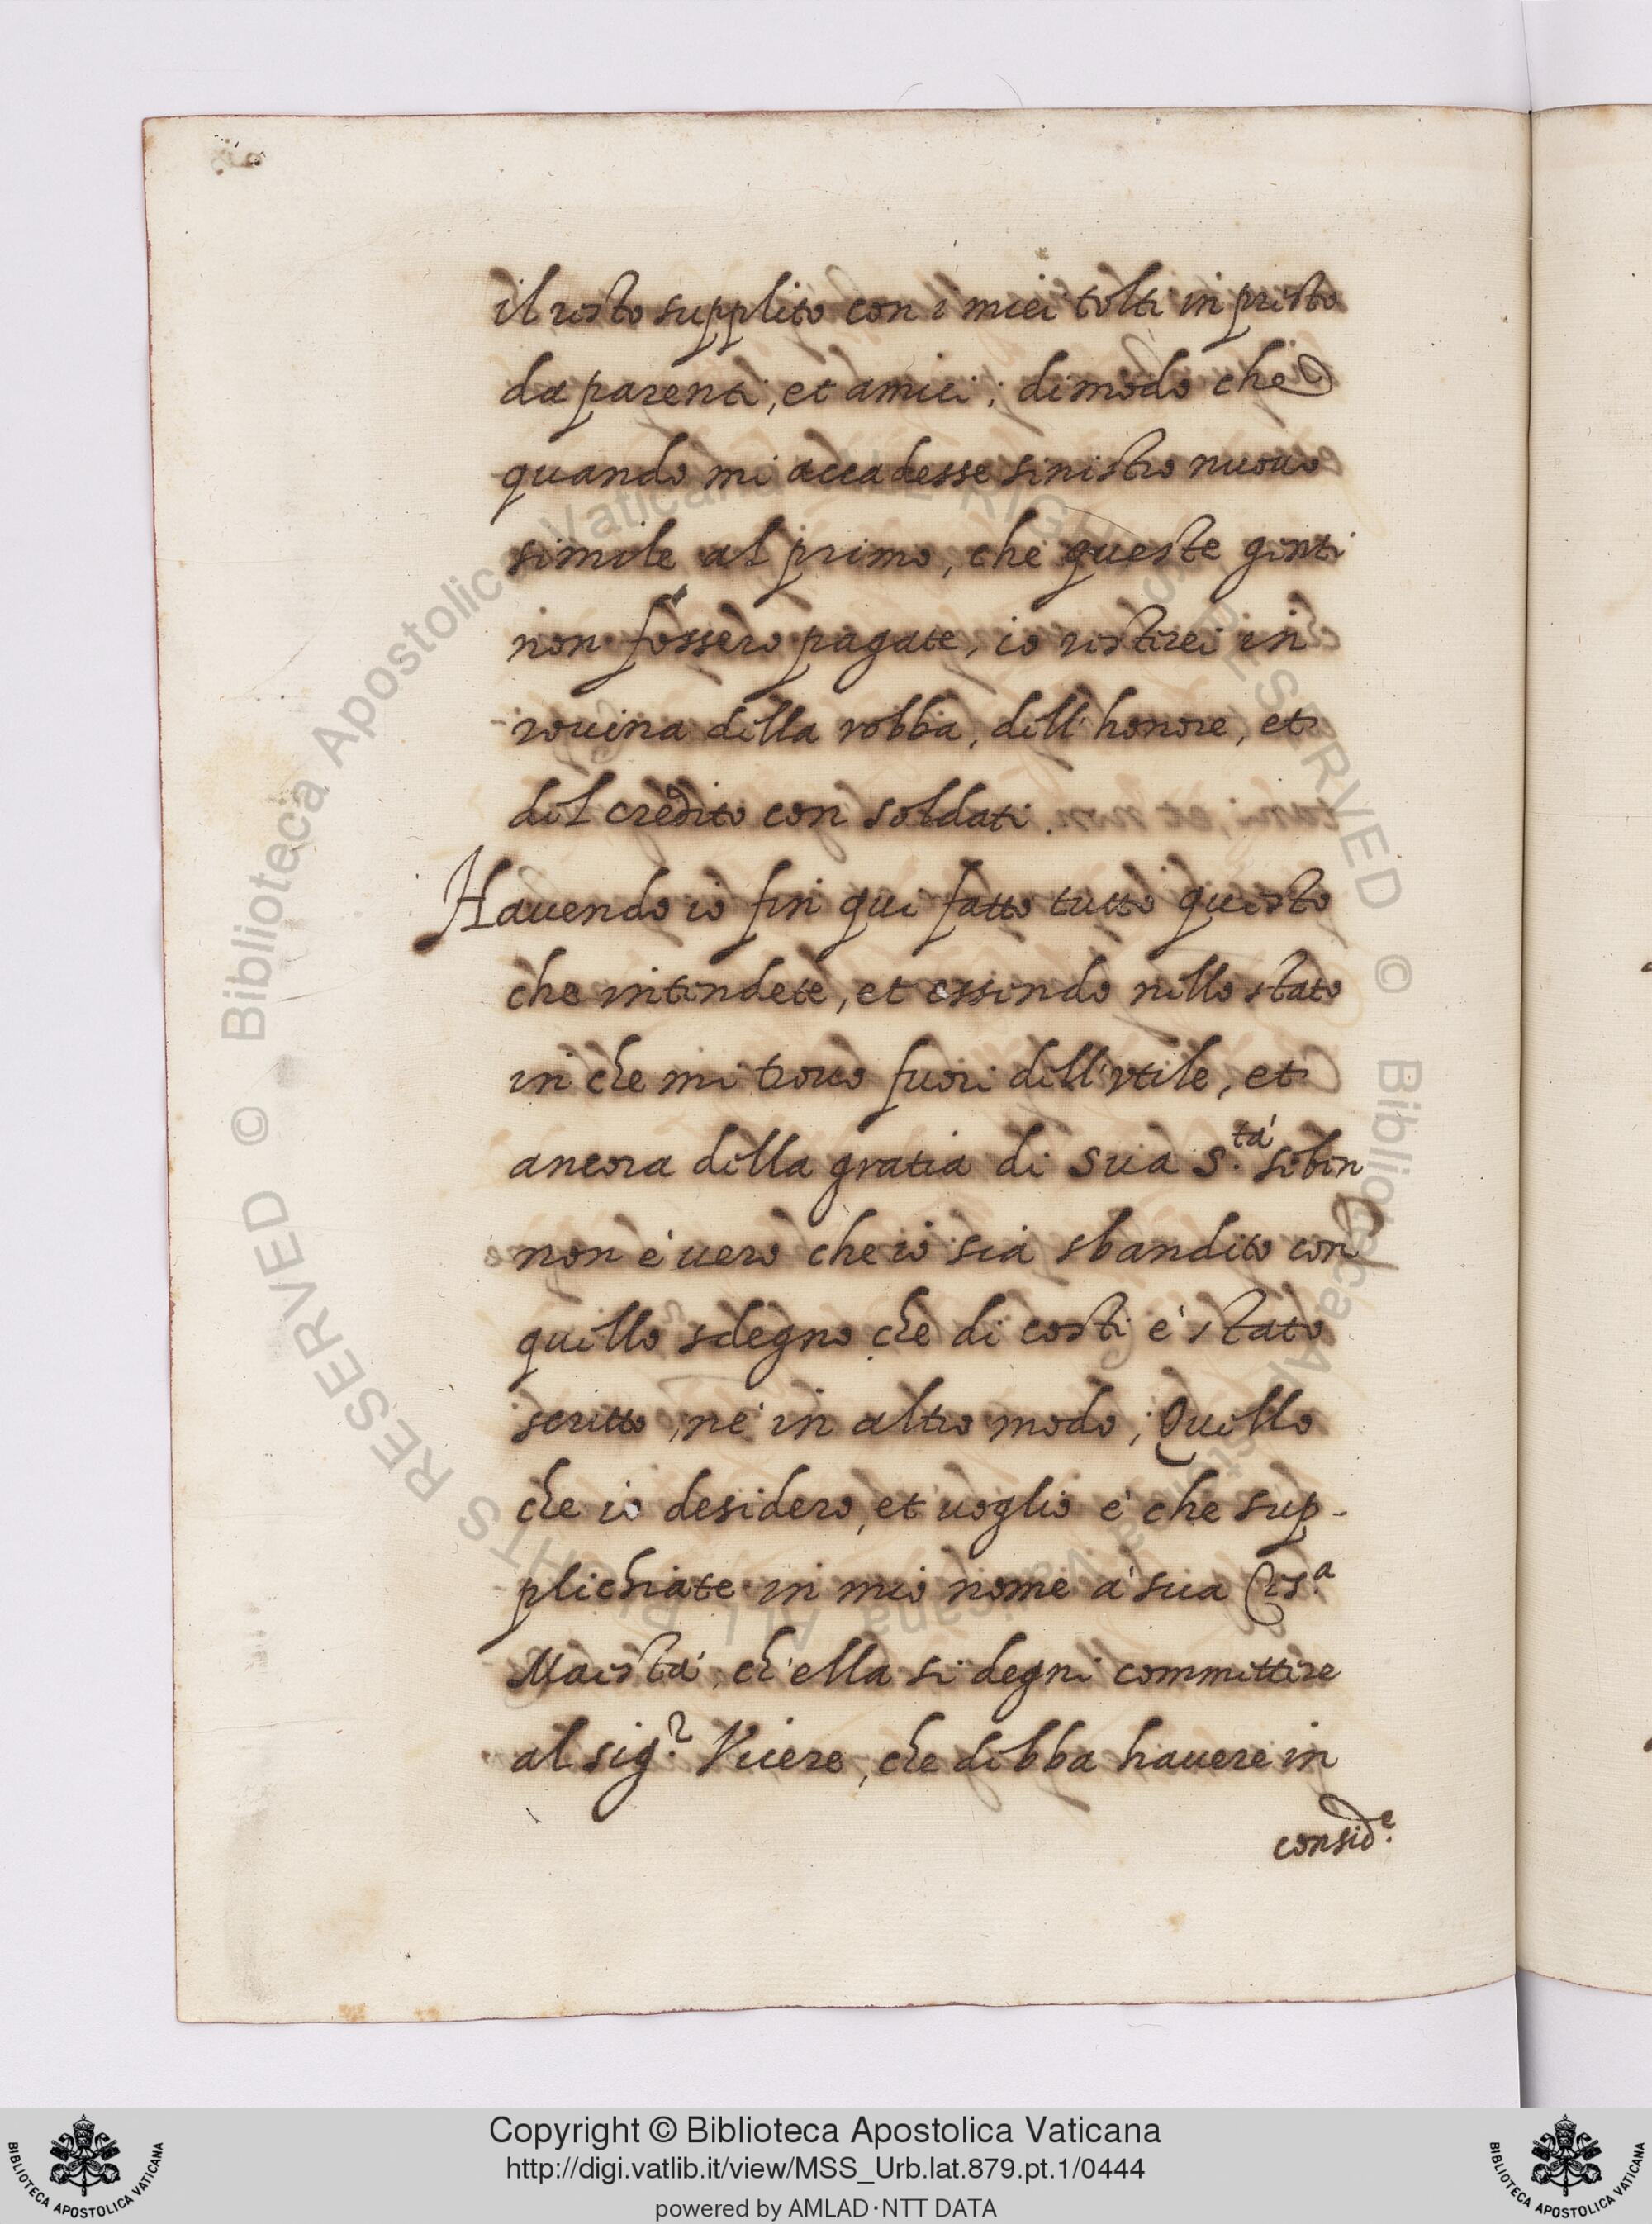 il resto supplito con i miei tolti in presto
da parenti, et amici; di modo che
quando mi accadesse sinistro nuouo
simile al primo, che queste genti
non fossero pagate, io resterei in
rouina della robba, dell'honore, et
del credito con soldati.
Hauendo io fin qui fatto tutto questo
che intendete, et essendo nello stato
in che mi trouo fuori dell'vtile, et
ancora della gratia di sua S.tà seben
non è uero che io sia sbandito con
quello sdegno che di costi è stato
scritto, nè in altro modo; Quello
che io desidero, et uoglio è che sup-
plichiate in mio nome à sua Ces.a
Maestà, ch'ella si degni committere
al sig.r Vicere, che debba hauere in
consid.e
Copyright © Biblioteca Apostolica Vaticana
http://digi.vatlib.it/view/MSS_Urb.lat.879.pt.1/0444
powered by AMLAD·NTT DATA
BIBLIOTECA APOSTOLICA VATICANA
BIBLIOTECA APOSTOLICA VATICANA
© Biblioteca Apostolica Vaticana ALL RIGHTS RESERVED © Biblioteca Apostolica Vaticana ALL RIGHTS RESERVED